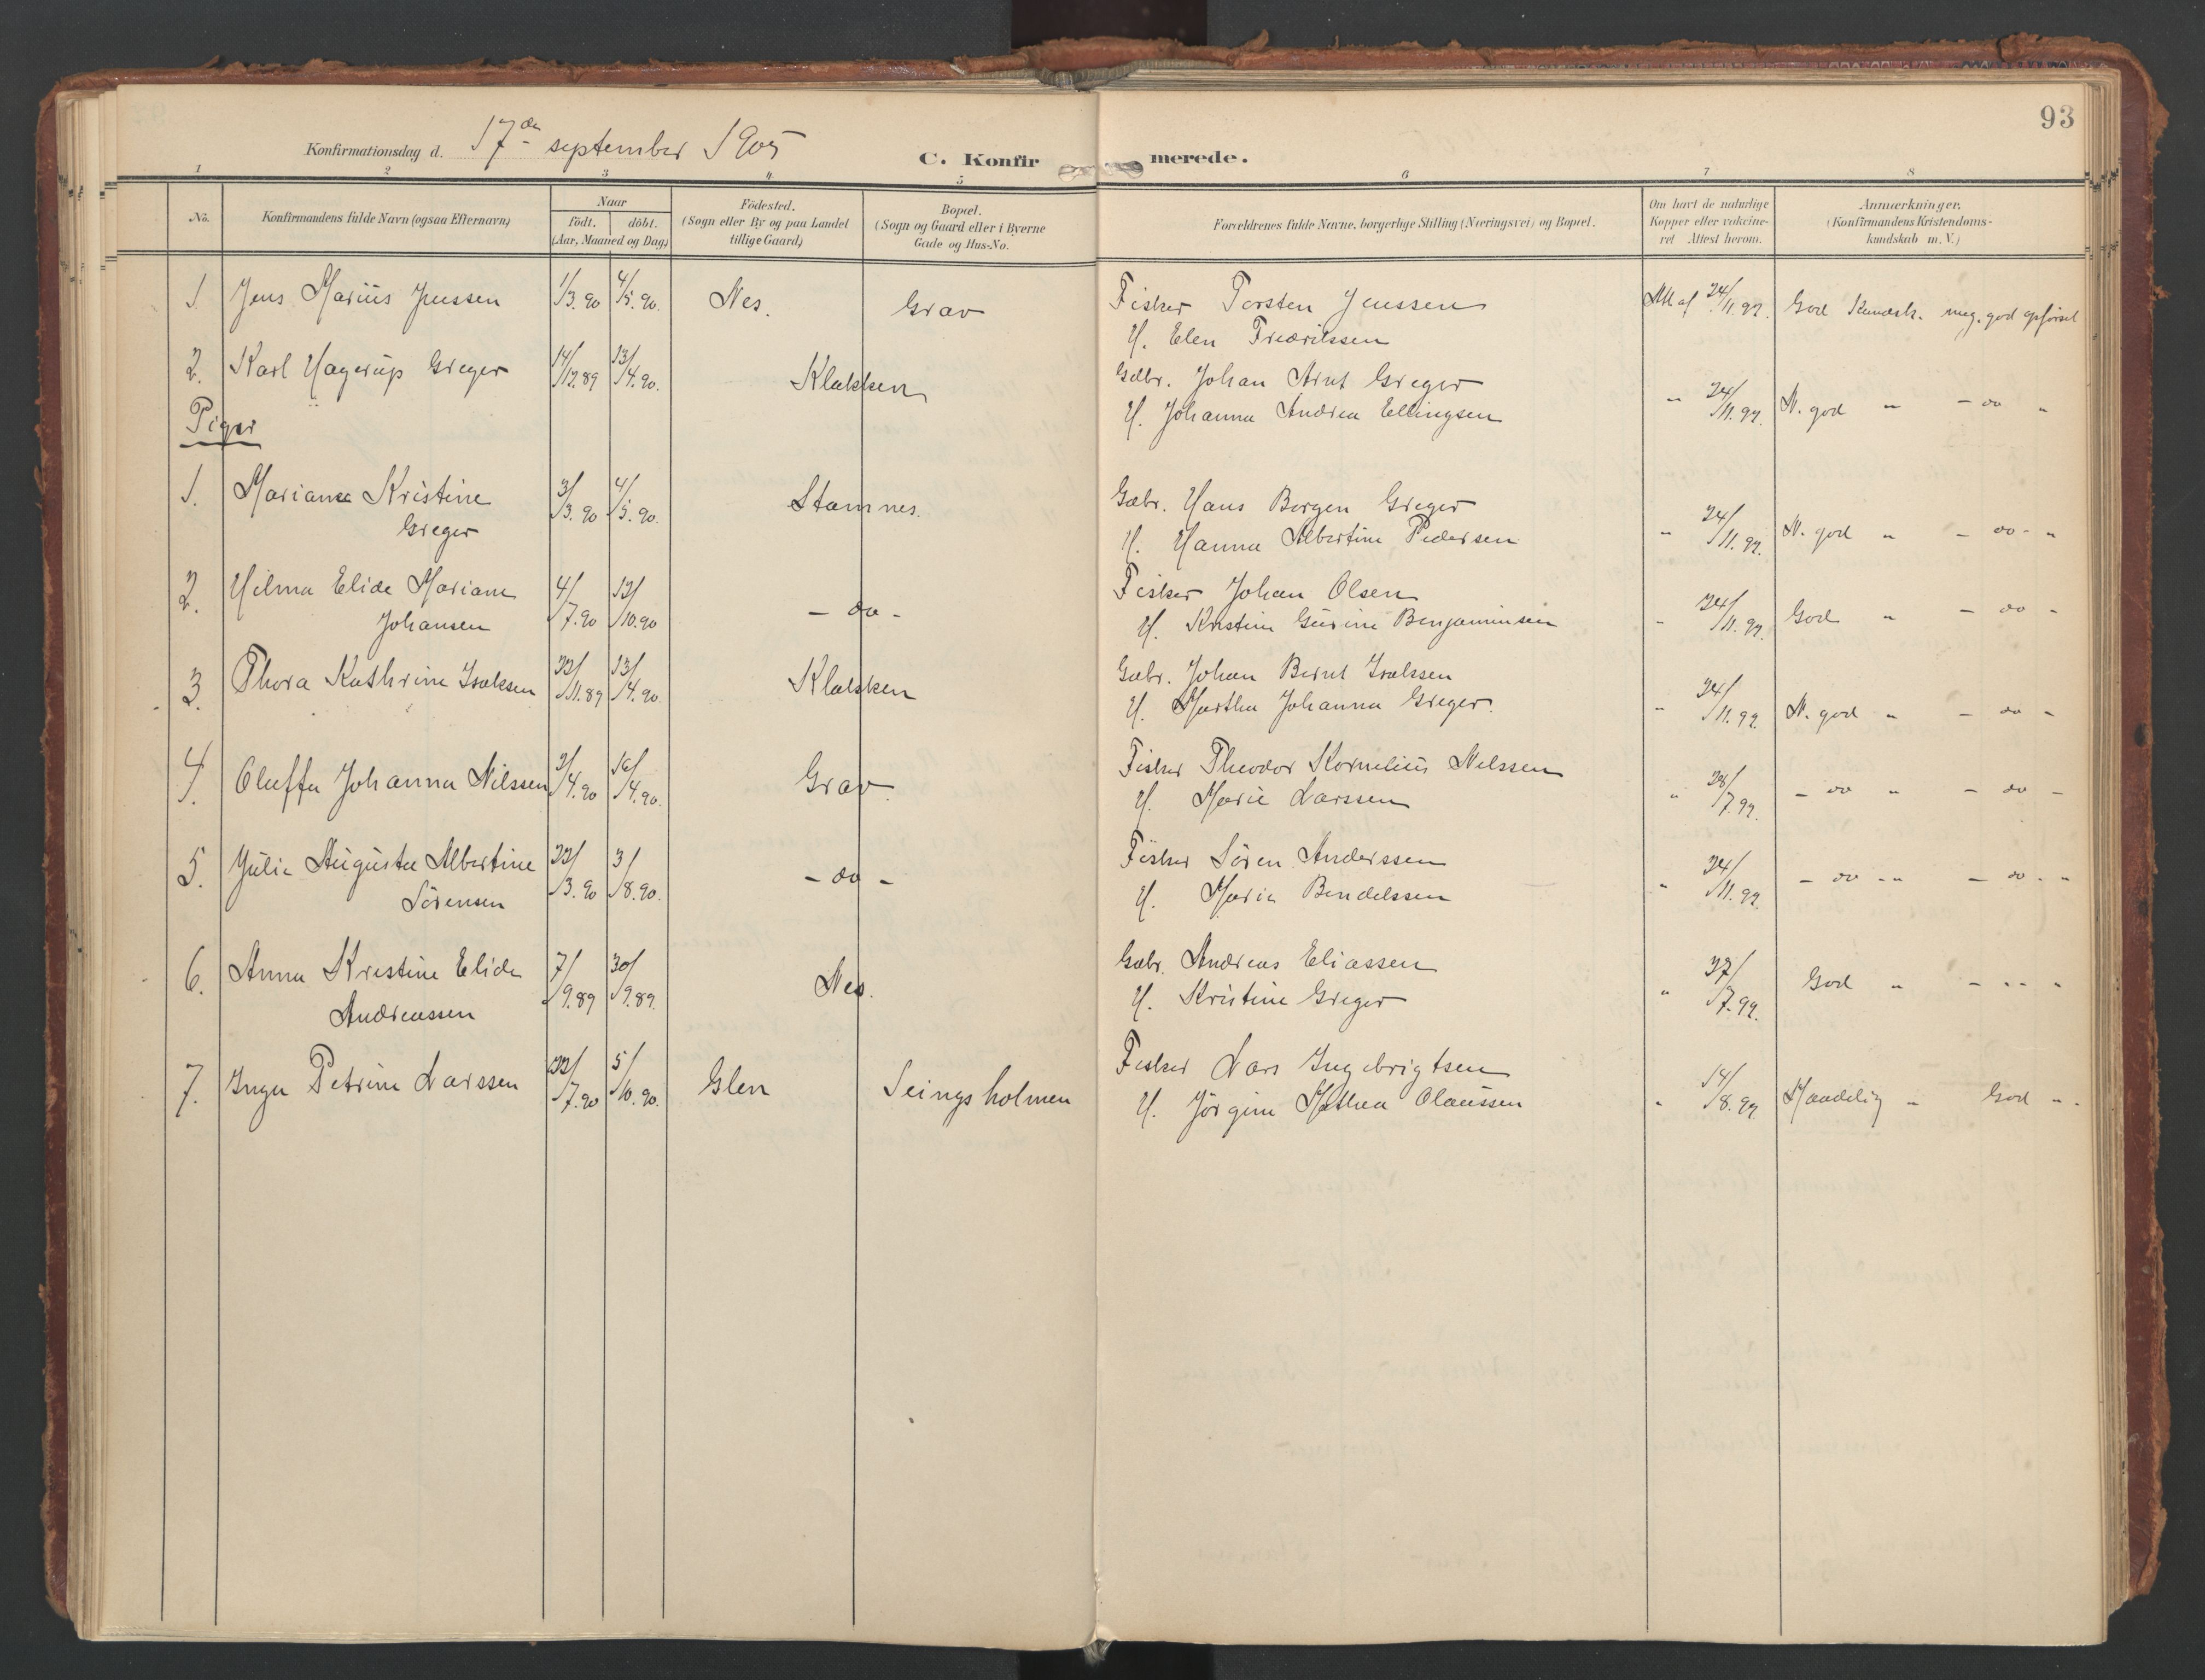 93
Konfirmationsdag d. 17de september 1905
C. Konfirmerede.
1 2 3 4 5 6 7 8
No.
Konfirmandens fulde Navn (ogsaa Efternavn)
Naar
födt. döbt.
(Aar, Maaned og Dag)
Födested.
(Sogn eller By og paa Landet
tillige Gaard)
Bopæl.
(Sogn og Gaard eller i Byerne
Gade og Hus-No.
Forældrenes fulde Navne, borgerlige Stilling (Næringsvei) og Bopæl.
Om havt de naturlige
Kopper eller vakcine-
ret Attest herom.
Anmærkninger.
(Konfirmandens Kristendoms-
kundskab m. V.)
1. Jens Marius Jenssen 1/3.90 4/5.90. Nes. Grav Fisker Torsten Jenssen af 24/11.99. God Kundsk. meg. god opførsel
H. Elen Fredrikssen
2. Karl Hagerup Greger 14/12.89 13/4.90. Klakken Gdbr. Johan Arnt Greger " 24/11.99. M. god " - do "
H. Johanna Andrea Ellingsen
Piger
1. Mariane Kristine 3/3.90 4/5.90. Stamnes. Gabr. Hans Borgen Greger
Greger H. Hanna Albertine Pedersen " 24/11.99. M. god " - do - "
2. Hilma Elide Mariane 4/7.90 12/10.90 - do - Fisker Johan Olsen
Johansen H. Kristine Gurine Benjaminsen " 24/11.99. God " - do -
3. Thora Kathrine Isaksen 22/11.89 13/4.90. Klakken Gabr. Johan Bernt Isakssen
H. Martha Johanna Greger. " 24/11.99. M. god " - do -
4. Oluffa Johanna Nilssen 2/4.90 16/4.90. Grav. Fisker Theodor Kornelius Nilssen
H. Marie Larssen " 28/7.99. - do " - do -
5. Julie Augusta Albertine 22/3.90 3/8.90. - do - Fisker Sören Anderssen
Sörensen H. Marie Bendikssen " 24/11.99. - do - " - do - "
6. Anna Kristine Elide 7/9.89 30/9.89. Nes. Gabr. Andreas Eliassen
Andreassen H. Kristine Greger " 27/7.99. God " - " - "
7. Inga Petrine Larssen 22/7.90 5/10.90. Glen Seingsholmen Fisker Lars Ingebrigtsen
H. Jörgine Mathea Olaussen " 14/8.99 Maadelig " God " -